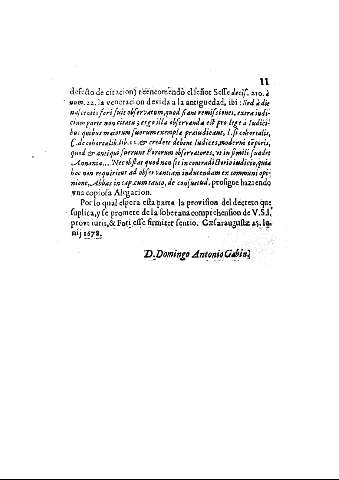 11
defecto de citacion) reencomendò el señor Sesse decis. 210. à
num. 22. la veneracion devida a la antiguedad, ibi: Sed à die
usque fori fuit observatum, quod fiant remissiones, extra iudi-
cium parte non citata; ergo illa observanda est pro lege à Iudici-
bus quibus maiorum suorum exempla præiudicant, l. si cohortalis,
C. de cohortalib. lib. 12. & credere debent Iudices, moderni tẽporis,
quod & antiqui fuerunt Fororum observatores, ut in simili suadet
Antonin.... Nec obstat quod non sit in contradictorio iudicio, quia
hoc non requiritur ad observantiam inducendam ex communi opi-
nione, Abbas in cap. cum causa, de consuetud. prosigue haziendo
una copiosa Alegacion.
Por lo qual espera esta parte la provision del decreto que
suplica, y se promete de la soberana comprehension de V.S.I.
prout iuris, & Fori esse firmiter sentio. Cæsaraugustæ 25. Iu-
nij 1678.
D. Domingo Antonio Gabin